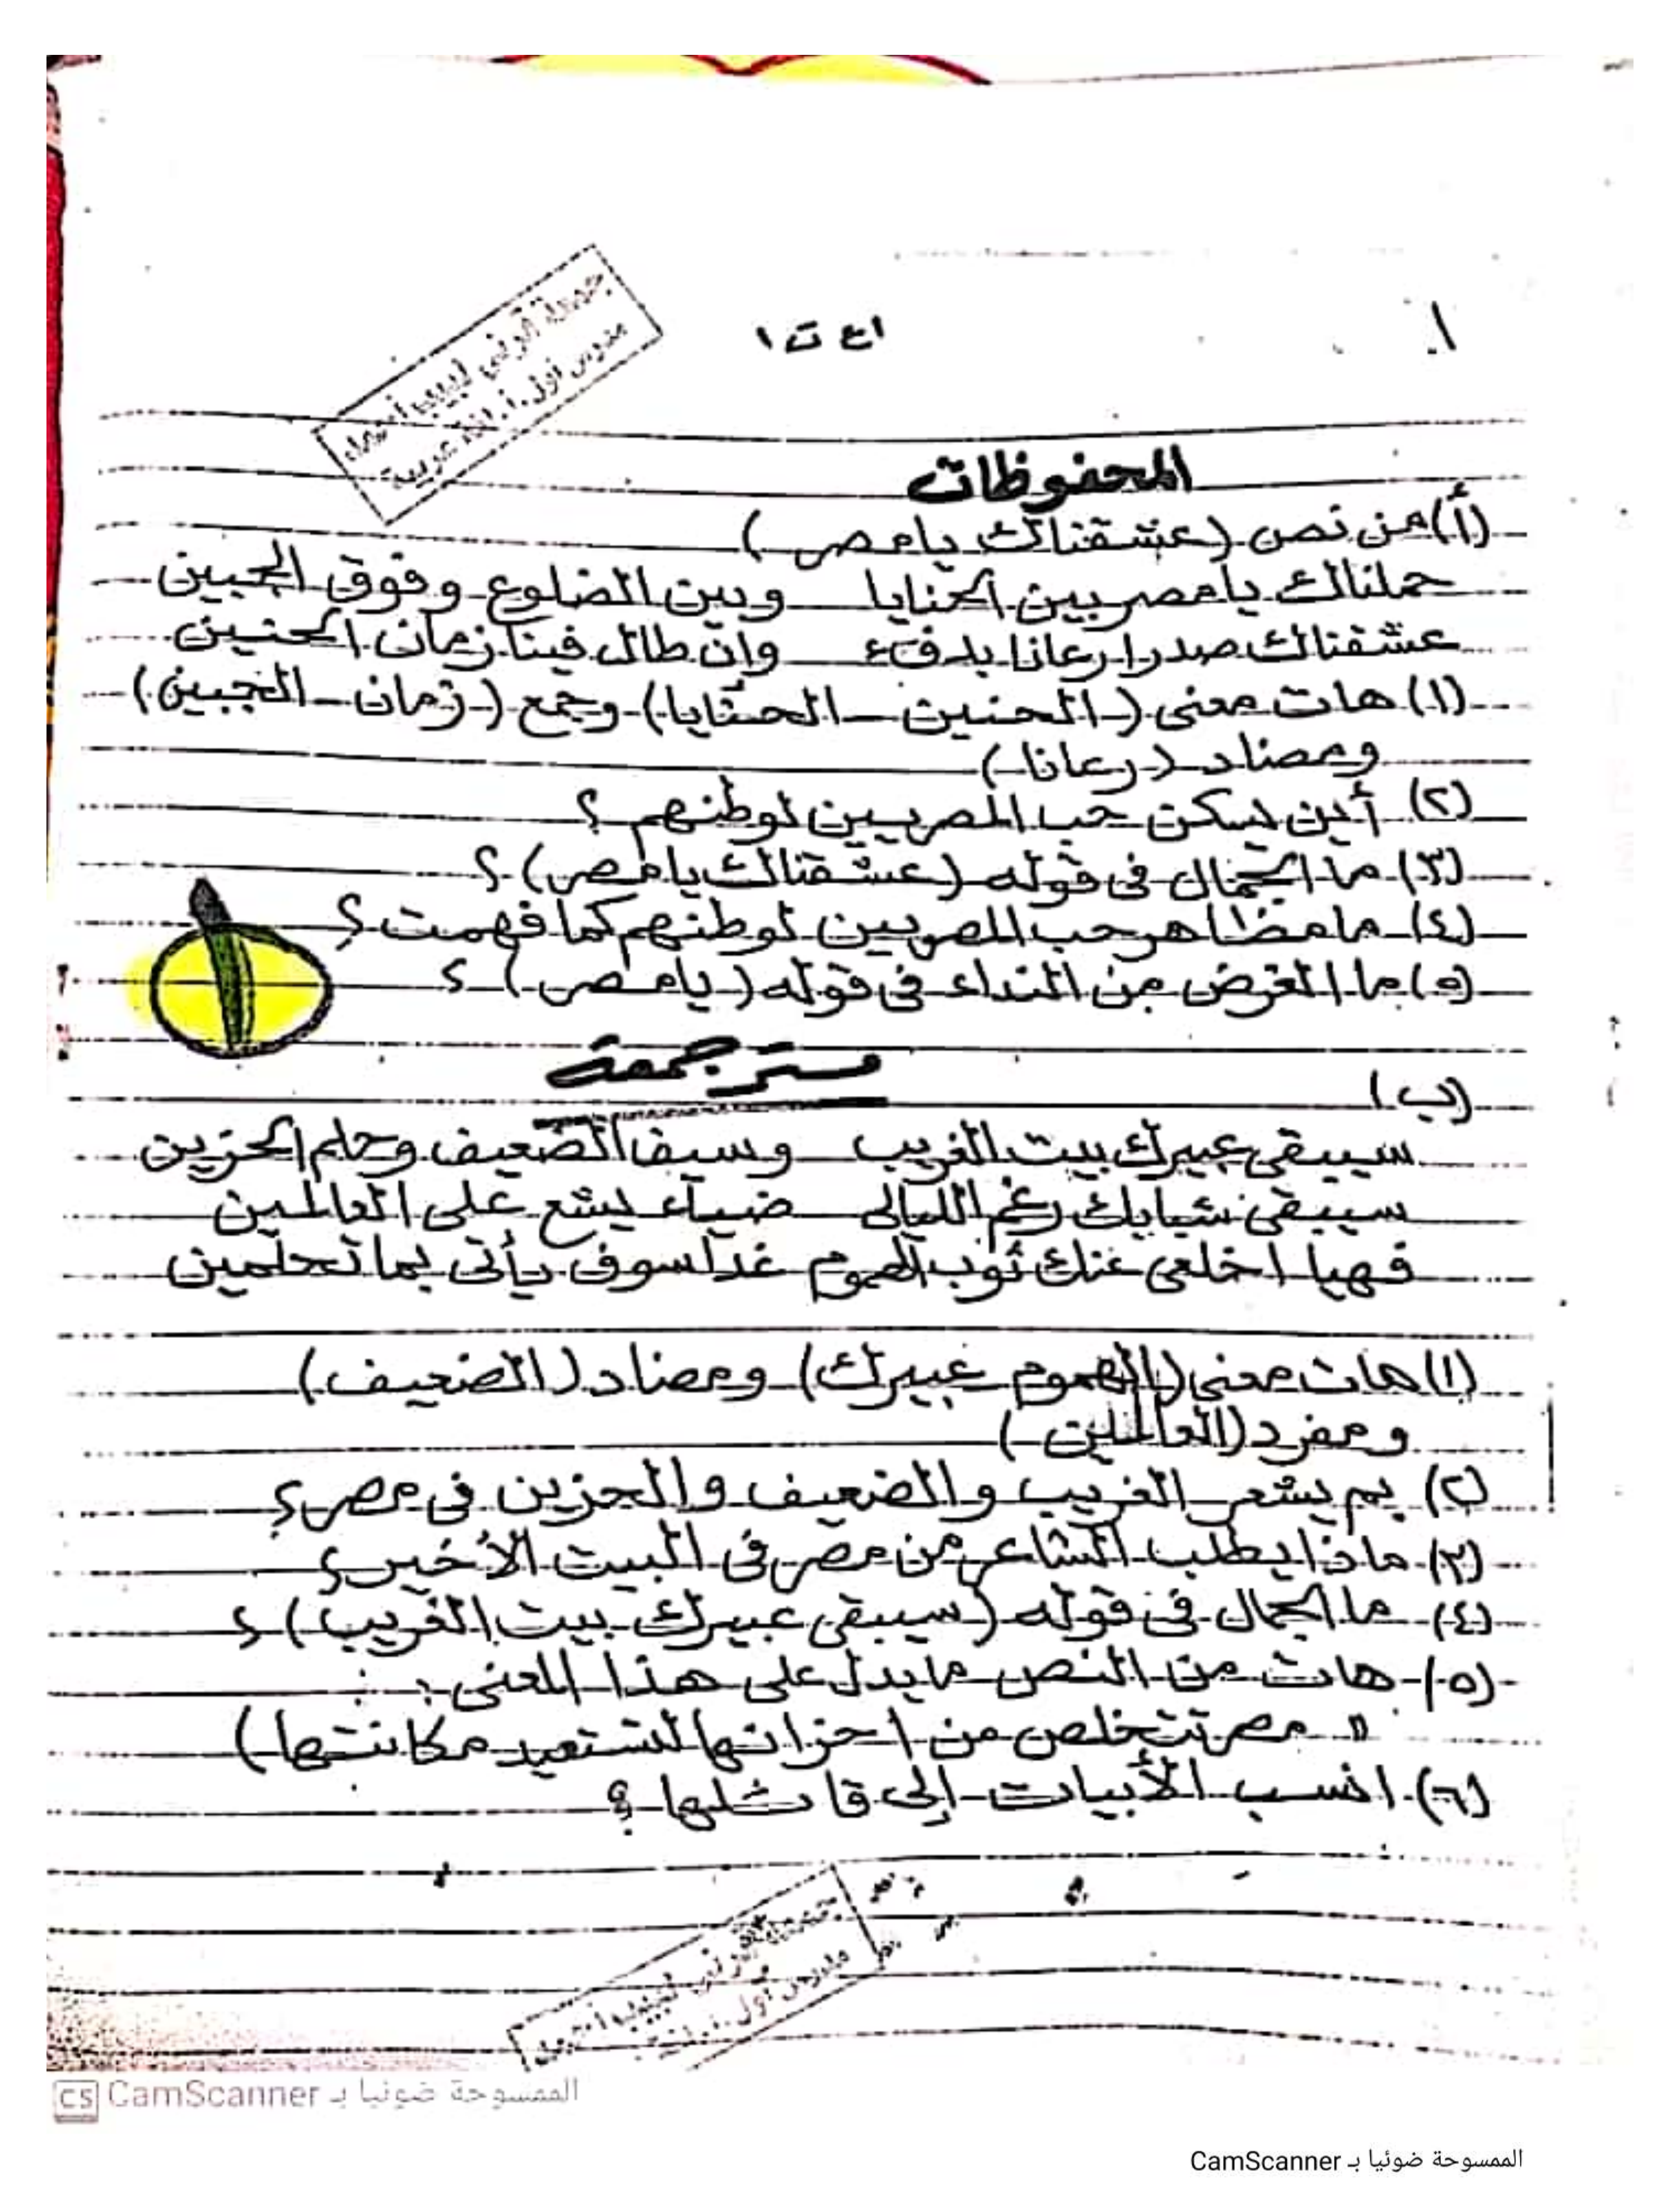 ١ع ت١
جمعة قرني لبيب
مدرس أول أ. لغة عربية
المحفوظات
(أ) من نص (عشقناك يا مصر)
حملناك يا مصر بين الحنايا وبين الضلوع وفوق الجبين
عشقناك صدرا رعانا بدفء وإن طال فينا زمان الحنين
(١) هات معنى (الحنين - الحنايا) وجمع (زمان - الجبين)
ومضاد (رعانا)
(٢) أين يسكن حب المصريين لوطنهم ؟
(٣) ما الجمال فى قوله (عشقناك يا مصر) ؟
(٤) ما مظاهر حب المصريين لوطنهم كما فهمت ؟
(٥) ما الغرض من النداء فى قوله (يا مصر) ؟
مستر جمعة
(ب)
سيبقى عبيرك بيت الغريب وسيف الضعيف وحلم الحزين
سيبقى شبابك رغم الليالى ضياء يشع على العالمين
فهيا اخلعى عنك ثوب الهموم غدا سوف يأتى بما تحلمين
(١) هات معنى (الهموم عبيرك) ومضاد (الضعيف)
ومفرد (العالمين)
(٢) بم يشعر الغريب والضعيف والحزين فى مصر ؟
(٣) ماذا يطلب الشاعر من مصر فى البيت الأخير ؟
(٤) ما الجمال فى قوله (سيبقى عبيرك بيت الغريب) ؟
(٥) هات من النص ما يدل على هذا المعنى :
" مصر تتخلص من احزانها لتستعيد مكانتها)
(٦) انسب الأبيات إلى قائلها ؟
جمعة قرني لبيب
مدرس أول
CS CamScanner الممسوحة ضوئيا بـ
الممسوحة ضوئيا بـ CamScanner